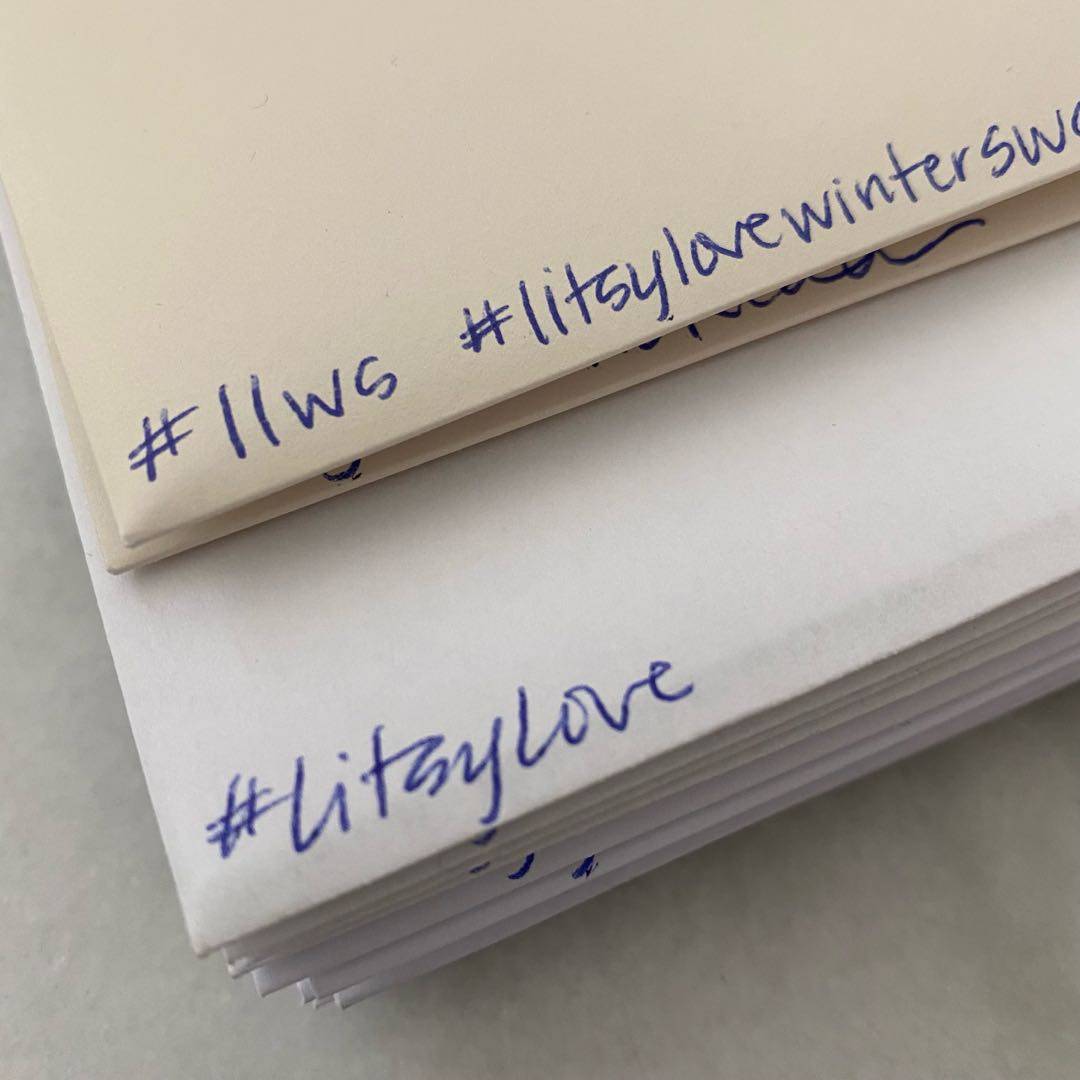 #llws #litsylovewinterswa
#litsylove